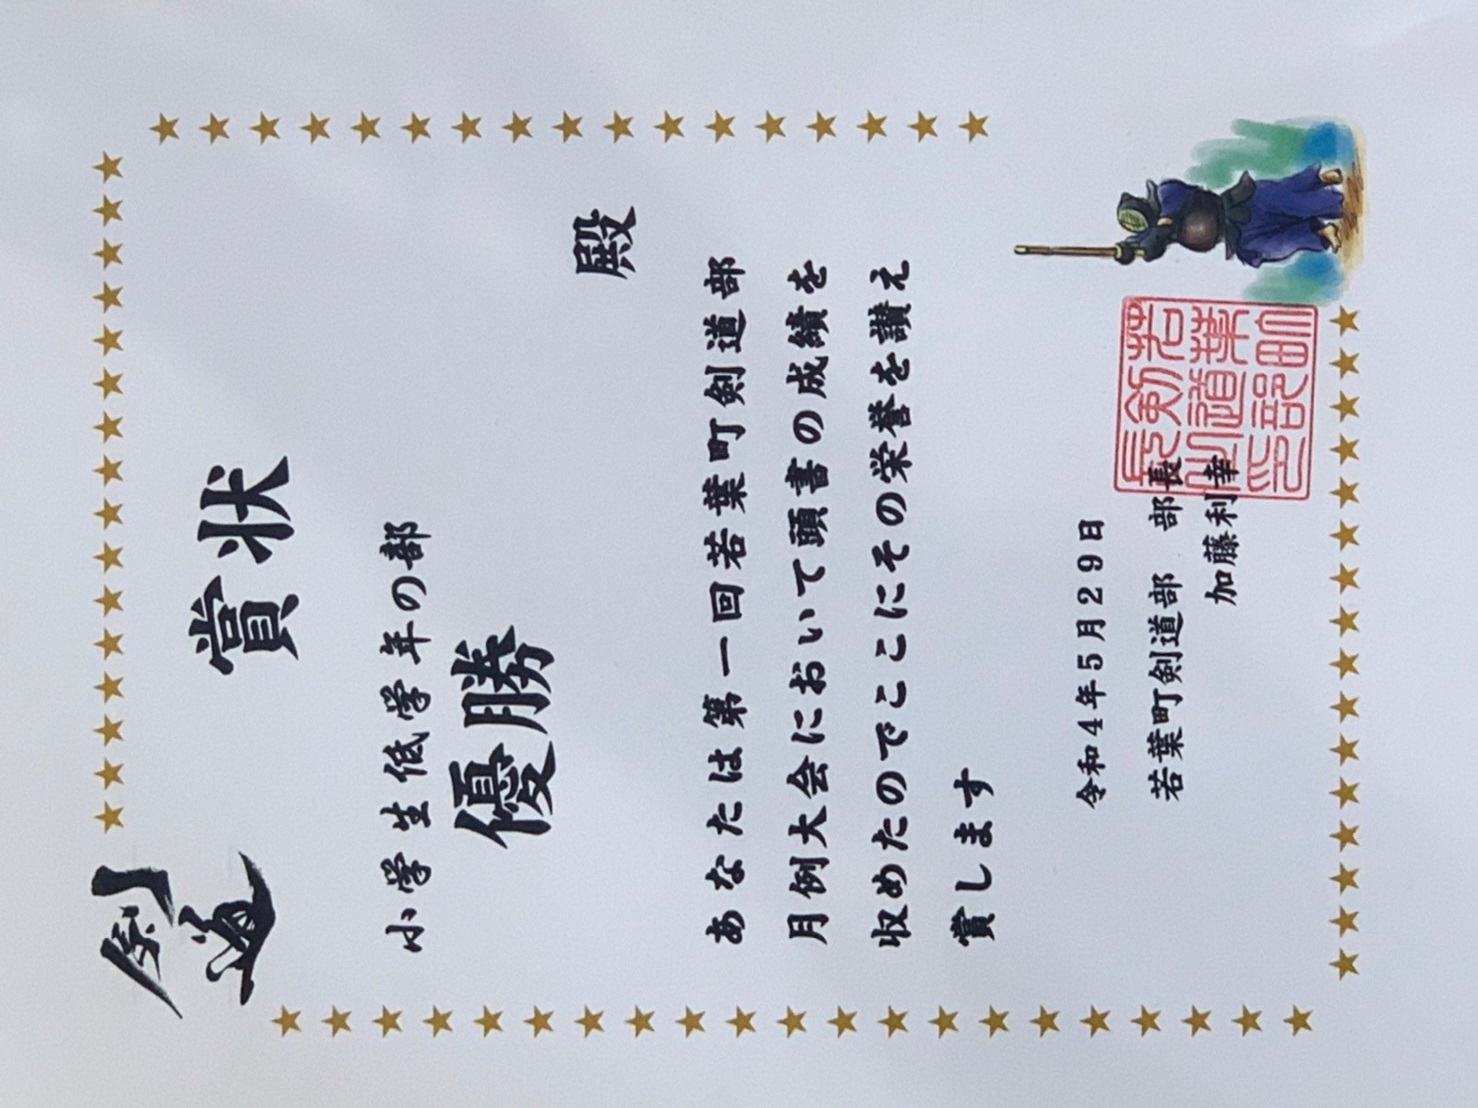 剣道
賞状
小学生低学年の部
優勝
殿
あなたは第一回若葉町剣道部
月例大会において頭書の成績を
収めたのでここにその栄誉を讃え
賞します
令和4年5月29日
若葉町剣道部　部長
加藤利幸
若葉町
剣道部
長之印